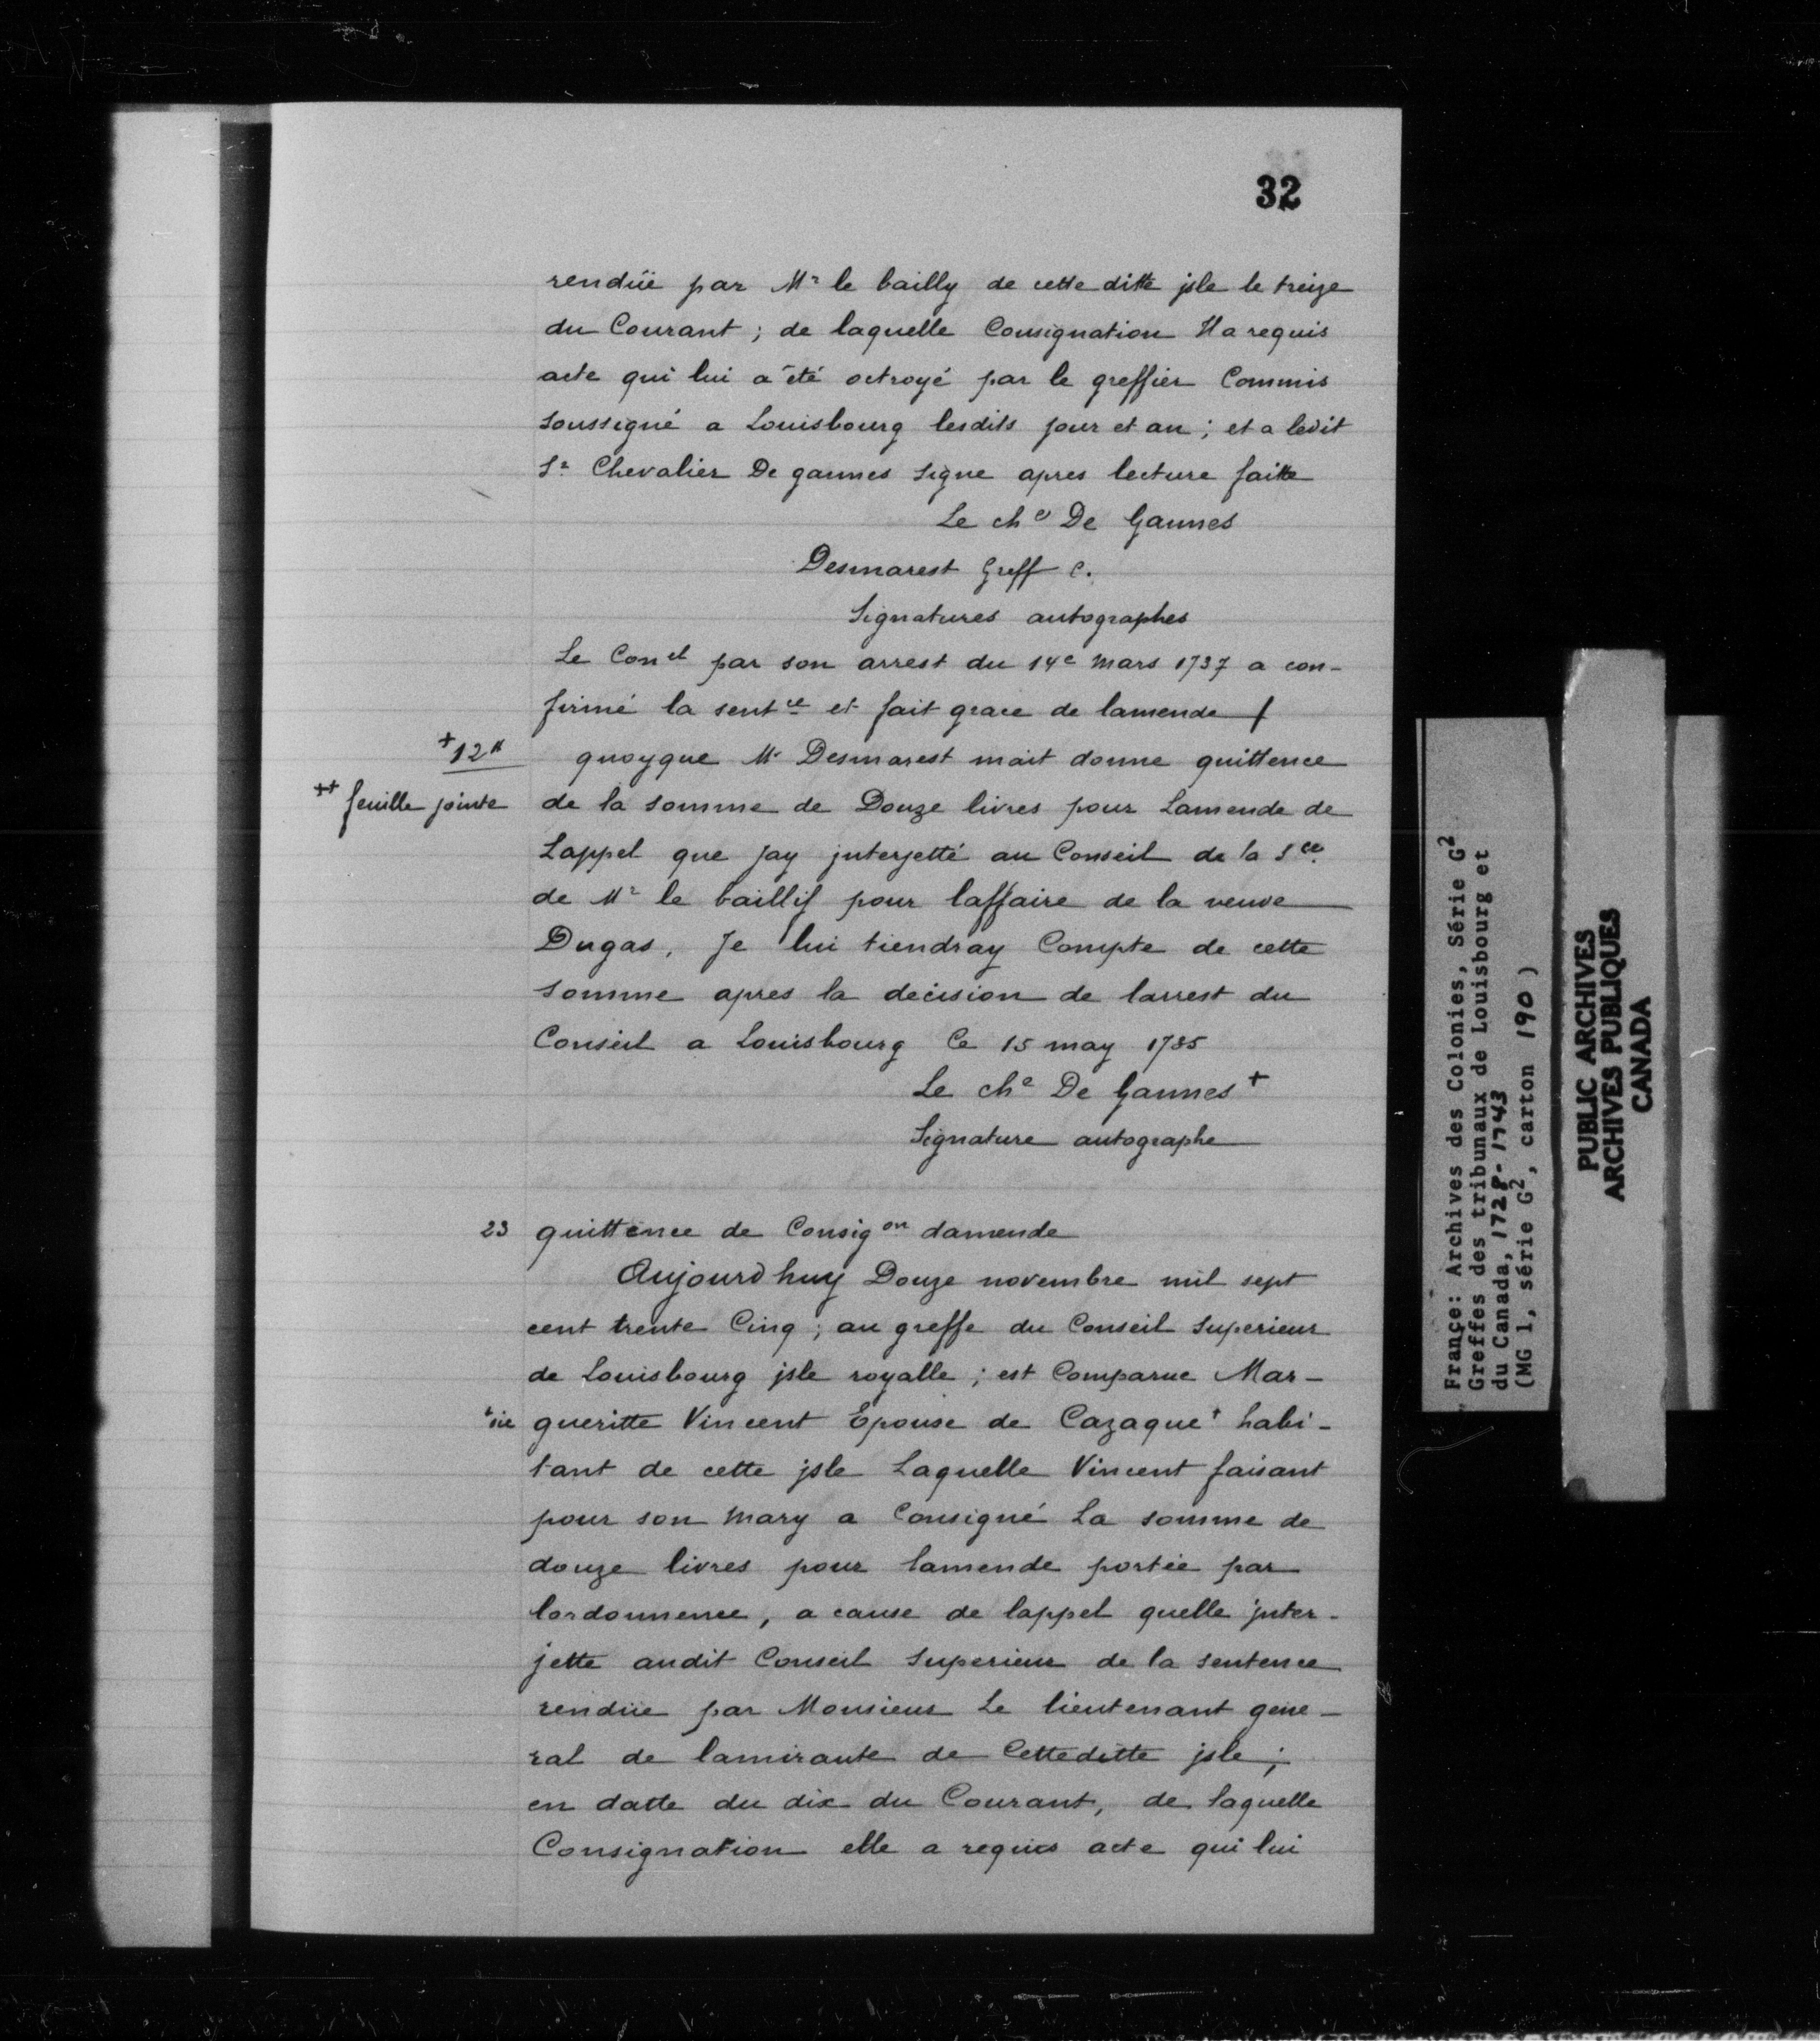 32
rendüe par Mr le bailly de cette ditte jsle le treize
du Courant ; de laquelle Consignation Il a requis
acte qui lui a été octroyé par le greffier Commis
soussigné a Louisbourg lesdits jour et an ; et a ledit
Sr Chevalier De gannes signe apres lecture faitte
Le che De Gannes
Desmarest Greff c.
Signatures autographes
Le Conel par son arrest du 14e mars 1737 a con-
firmé la sentce et fait grace de lamende
+12#
quoyque Mr Desmarest mait donne quittence
++ feuille jointe
de la somme de Douze livres pour Lamende de
Lappel que jay jnterjetté au Conseil de la sce
de Mr le baillif pour laffaire de la veuve
Dugas, Je lui tiendray Compte de cette
somme apres la decision de larrest du
Conseil a Louisbourg Ce 15 may 1735
Le che De Gannes +
Signature autographe
23 quittence de Consigon damende
Aujourdhuy Douze novembre mil sept
cent trente Cinq ; au greffe du Conseil Superieur
de Louisbourg jsle royalle ; est Comparue Mar-
gueritte Vincent Epouse de Cazaque+ habi-
tant de cette jsle Laquelle Vincent faisant
pour son mary a Consigné La somme de
douze livres pour lamende portée par
lordonnence, a cause de lappel quelle jnter-
jette audit Conseil Superieur de la sentence
rendüe par Monsieur Le lieutenant gene-
ral de lamirauté de Cetteditte jsle ;
en datte du dix du Courant, de laquelle
Consignation elle a requis acte qui lui
France: Archives des Colonies, Série G2
Greffes des tribunaux de Louisbourg et
du Canada, 1728-1743
(MG 1, série G2, carton 190)
PUBLIC ARCHIVES
ARCHIVES PUBLIQUES
CANADA